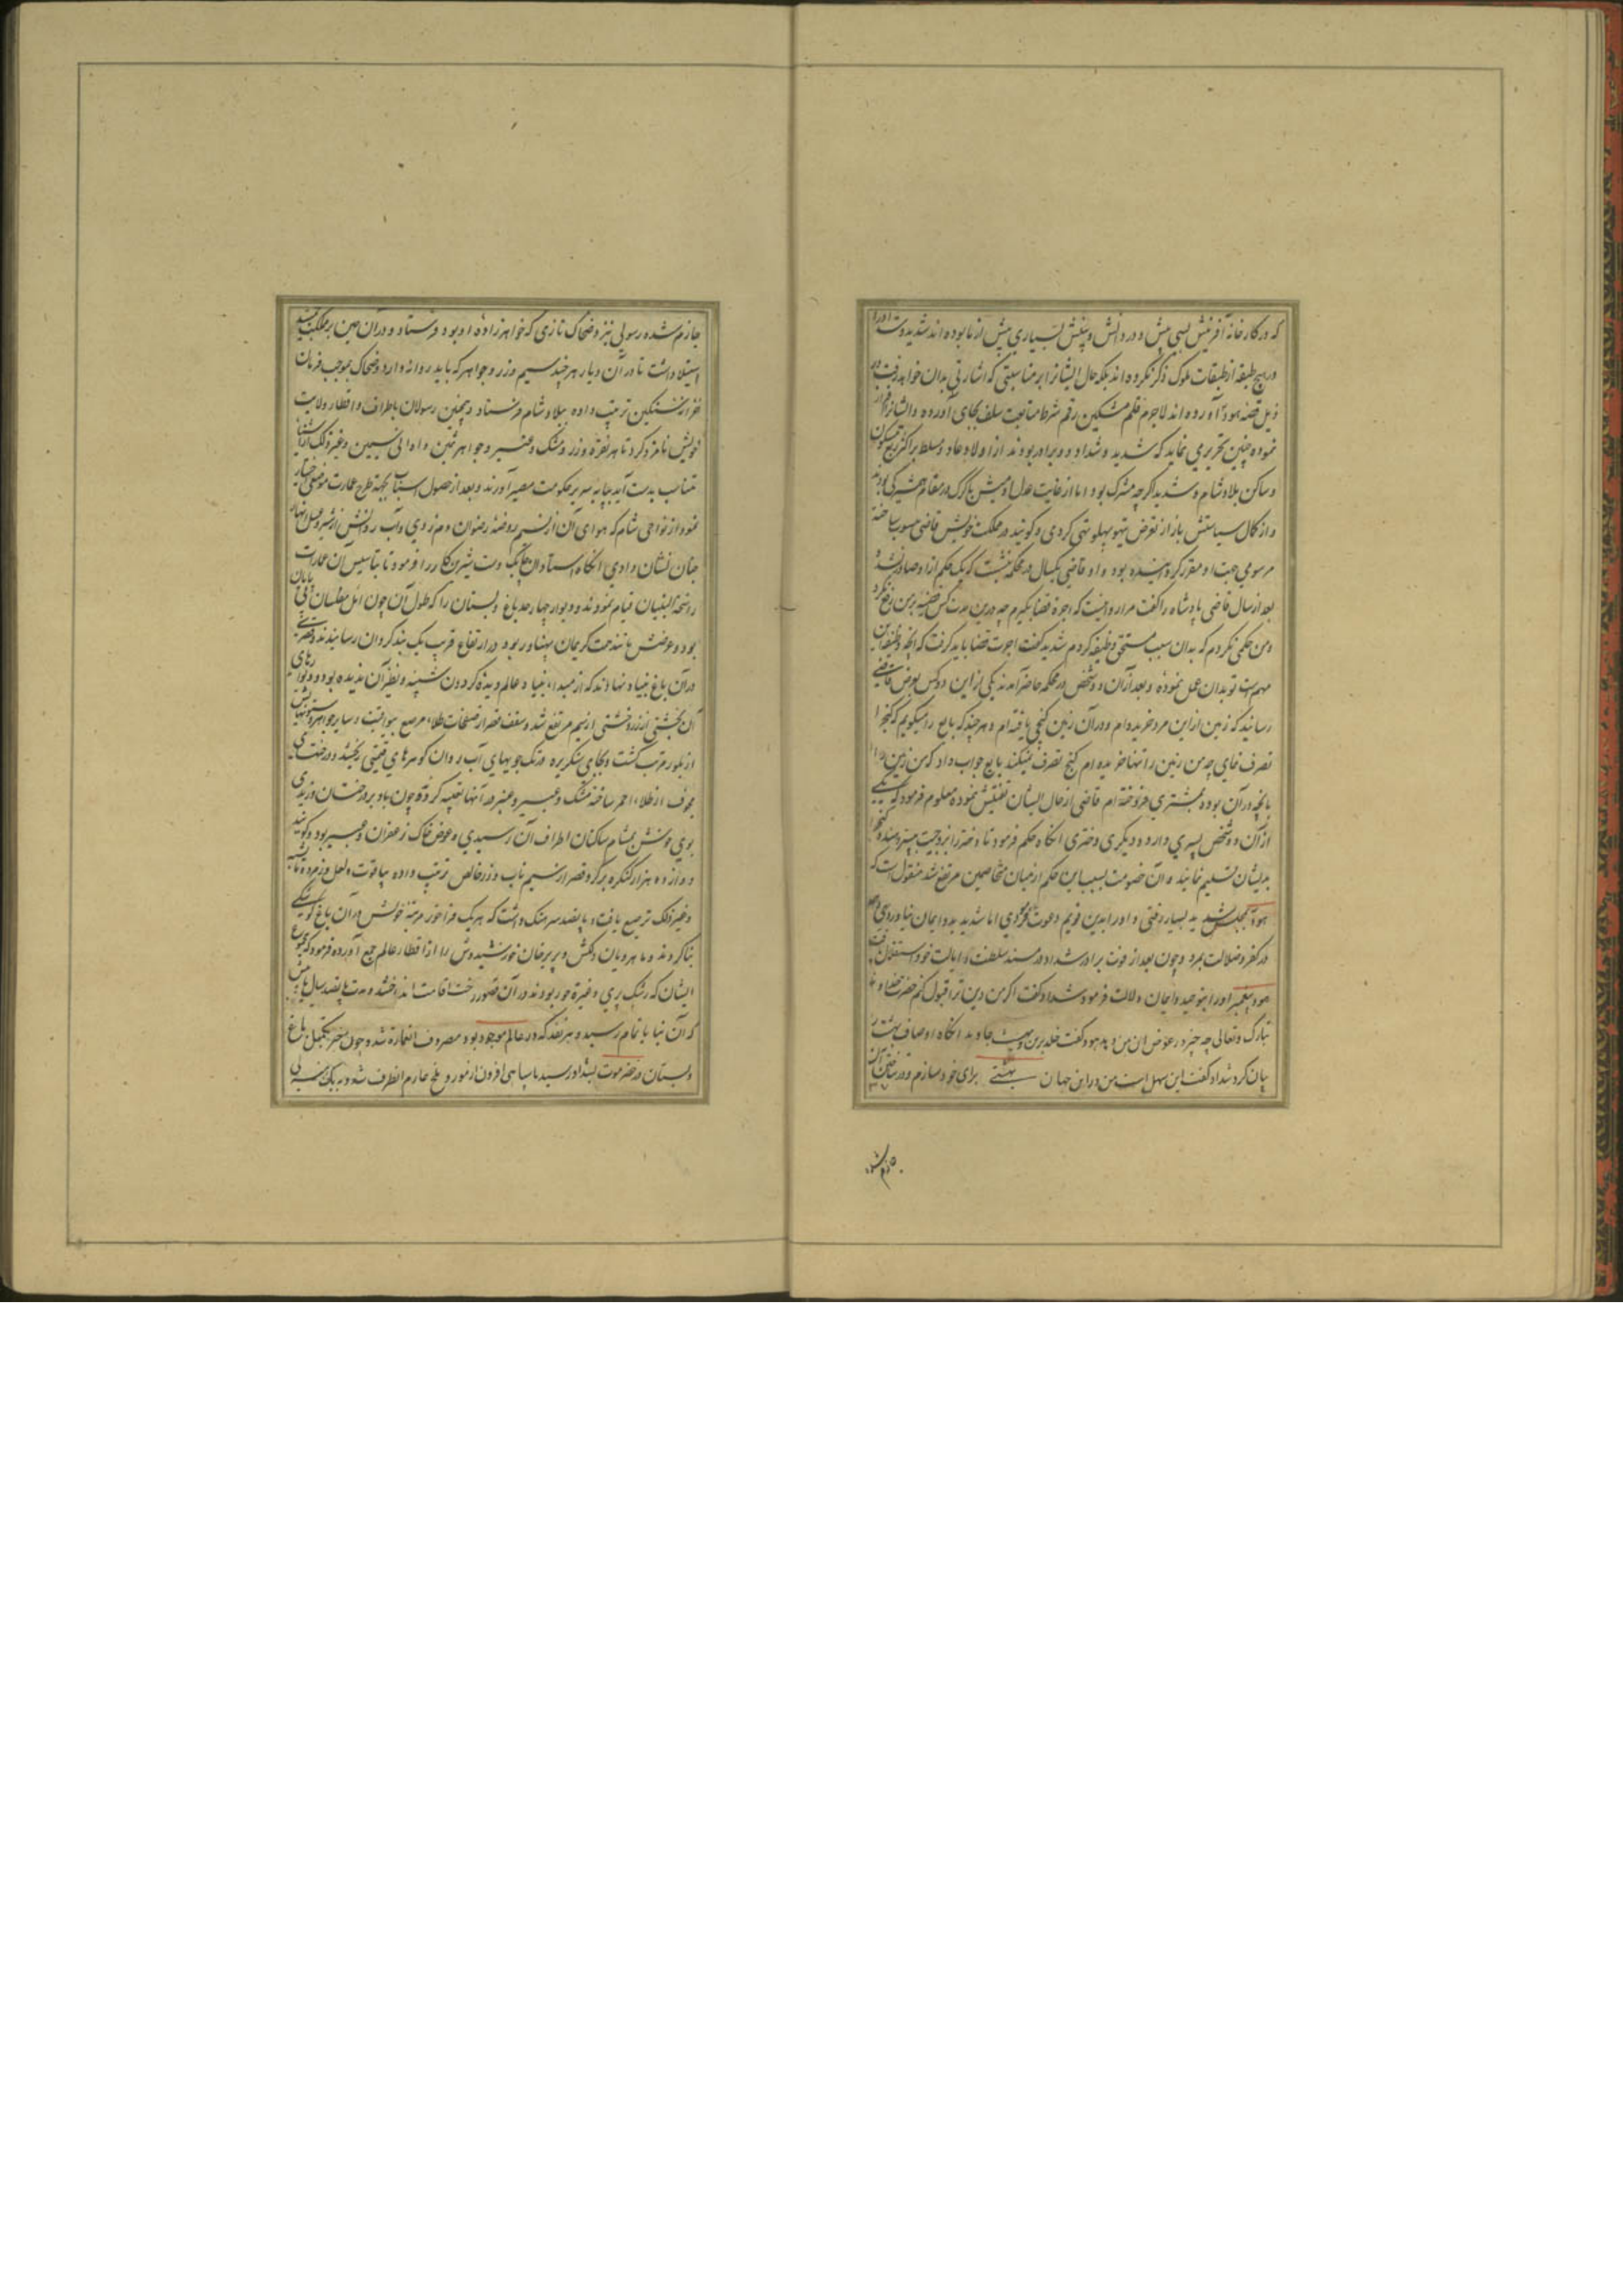 که در کارخانهٔ آفرینش بسی پیش و در دانش و بینش بسیاری بیش از ما بوده‌اند شدید و شداد را
در هیچ طبقه از طبقات ملوک ذکر نکرده‌اند بلکه حال ایشانرا بر مناسبتی که اشارتی بدان خواهد رفت در
ذیل قصه هود آورده‌اند لاجرم قلم مشکین رقم شرط متابعت سلف بجای آورده و ایشانرا
نموده چنین تحریر می نماید که شدید و شداد دو برادر بودند از اولاد عاد و مسلط بر اکثر ربع مسکون
و ساکن بلاد شام و شدید اگرچه مشرک بود اما از غایت عدل او میش با گرگ در مقام همشیرگی بودند
و از کمال سیاستش باز از تعرض تیهو پهلو تهی کردی و گویند در مملکت خویش قاضی منصوب ساخته
مرسومی جهت او مقرر کرده بود و او قاضی یکسال در محکمه نشست که یک حکم ازو صادر نشد
بعد از سال قاضی پادشاه را گفت مرا روا نیست که اجرة قضا بگیرم چه درین مدت کس قضیه بر من رفع نکرد
و من حکمی نکردم که بدان سبب مستحق وظیفه گردم شدید گفت اجرت قضا باید گرفت که آنچه وظیفه این
مهم است تو بدان عمل نموده و بعد از آن دو شخص در محکمه حاضر آمدند یکی از این دو کس بعرض قاضی
رسانید که زمین از این مرد خریده‌ام و در آن زمین گنجی یافته‌ام و هر چند که بایع را میگویم که گنج را
تصرف نمای چه من زمین را تنها خریده‌ام گنج تصرف نمیکند بایع جواب داد که من زمین را
بآنچه در آن بوده بمشتری فروخته‌ام قاضی از حال ایشان تفتیش نموده معلوم فرمود که یکی
از آن دو شخص پسری دارد و دیگری دختری آنگاه حکم فرمود تا دختر را بزوجیت پسر دهند و گنج را
بدیشان تسلیم نمایند و آن خصومت بسبب این حکم از میان متخاصمین مرتفع شد منقول است که
هود بمجلس شدید بسیار رفتی و او را بدین قویم دعوت فرمودی اما شدید بدو ایمان نیاوردی و هم
در کفر و ضلالت بمرد و چون بعد از فوت برادر شداد در مسند سلطنت و ایالت خود استقلال یافت
هود پیغمبر او را بتوحید و ایمان دلالت فرمود شداد گفت اگر من دین ترا قبول کنم حضرت خداوند
تبارک و تعالی چه چیز در عوض آن بمن دهد هود گفت خلد برین و بهشت جاوید آنگاه اوصاف بهشت را
بیان کرد شداد گفت این سهل است من در این جهان بهشتی برای خود سازم و در ساختن آن
جازم شده
جازم شده رسولی نیز و ضحاک تازی که خواهرزادهٔ او بود فرستاد و در آن حین بر مملکت جمشید
استیلا داشت تا در آن دیار هر چند سیم و زر و جواهر که باید روانه دارد و ضحاک بموجب فرمان
ترتیب داده ببلاد شام فرستاد و همچنین رسولان باطراف و اقطار ولایت
خویش نامزد کرد تا هر نقره و زر و مشک و عنبر و جواهر ثمین و اوانی سیمین و غیر ذلک از اشیاء
بدست آید بپایه سریر حکومت مصیر آورند و بعد از حصول اسباب بجهة طرح عمارت موضعی اختیار
نمود از نواحی شام که هوای آن از نسیم روضهٔ رضوان دم زدی و آب روانش از شیر و عسل انهار
جنان نشان دادی آنگاه استادان چابک دست شیرین کار را فرمود تا بتأسیس آن عمارت
راسخة البنیان قیام نمودند و دیوار چهار حد باغ و بستان را که طول آن چون امل مطلسان بی پایان
بود و عرضش مانند همت کریمان پهناور بود در ارتفاع قریب یک بند گردان رسانیدند و قصری
در آن باغ بنیاد نهادند که از مبدأ بنیاد عالم دیدهٔ گردون شبیه و نظیر آن ندیده بود و دیوارهای
آن بخشتی از زر و خشتی از سیم مرتفع شد و سقف قصر از صفحات طلاء مرصع بیواقیت و سایر جواهر و ستونهایش
از بلور مرتب گشت و بجای سنگریزه در تک جویهای آب روان گوهرهای قیمتی ریختند و درختهای
مجوف از طلاء احمر ساخته مشک و عبیر و عنبر در آنها تعبیه کردند چون باد بر درختان وزیدی
بوی خوش بمشام ساکنان اطراف آن رسیدی و عوض خاک زعفران و عبیر بود و گویند
دوازده هزار کنگره بر گرد قصر از سیم ناب و زر خالص ترتیب داده بیاقوت و لعل و زمرد
و غیر ذلک ترصیع یافت و پانصد سرهنگ داشت که هر یک فراخور مرتبهٔ خویش در آن باغ کوشکی
بنا کردند و ماهرویان دلکش و پریرخان خورشیدوش را از اقطار عالم جمع آورده فرمود که مجموع
ایشان که رشک پری و غیرة حور بودند در آن قصور رخت اقامت انداختند و مدت پانصد سال
که آن بنا باتمام رسید و هر نقد که در عالم موجود بود مصروف آن عمارت شد و چون خبر تکمیل باغ
و بستان در حضرموت بشداد رسید با سپاهی افزون از مور و ملخ عازم آنطرف شد